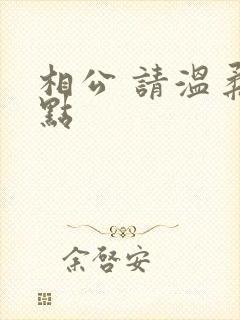 相公 請溫柔
點
余啓安